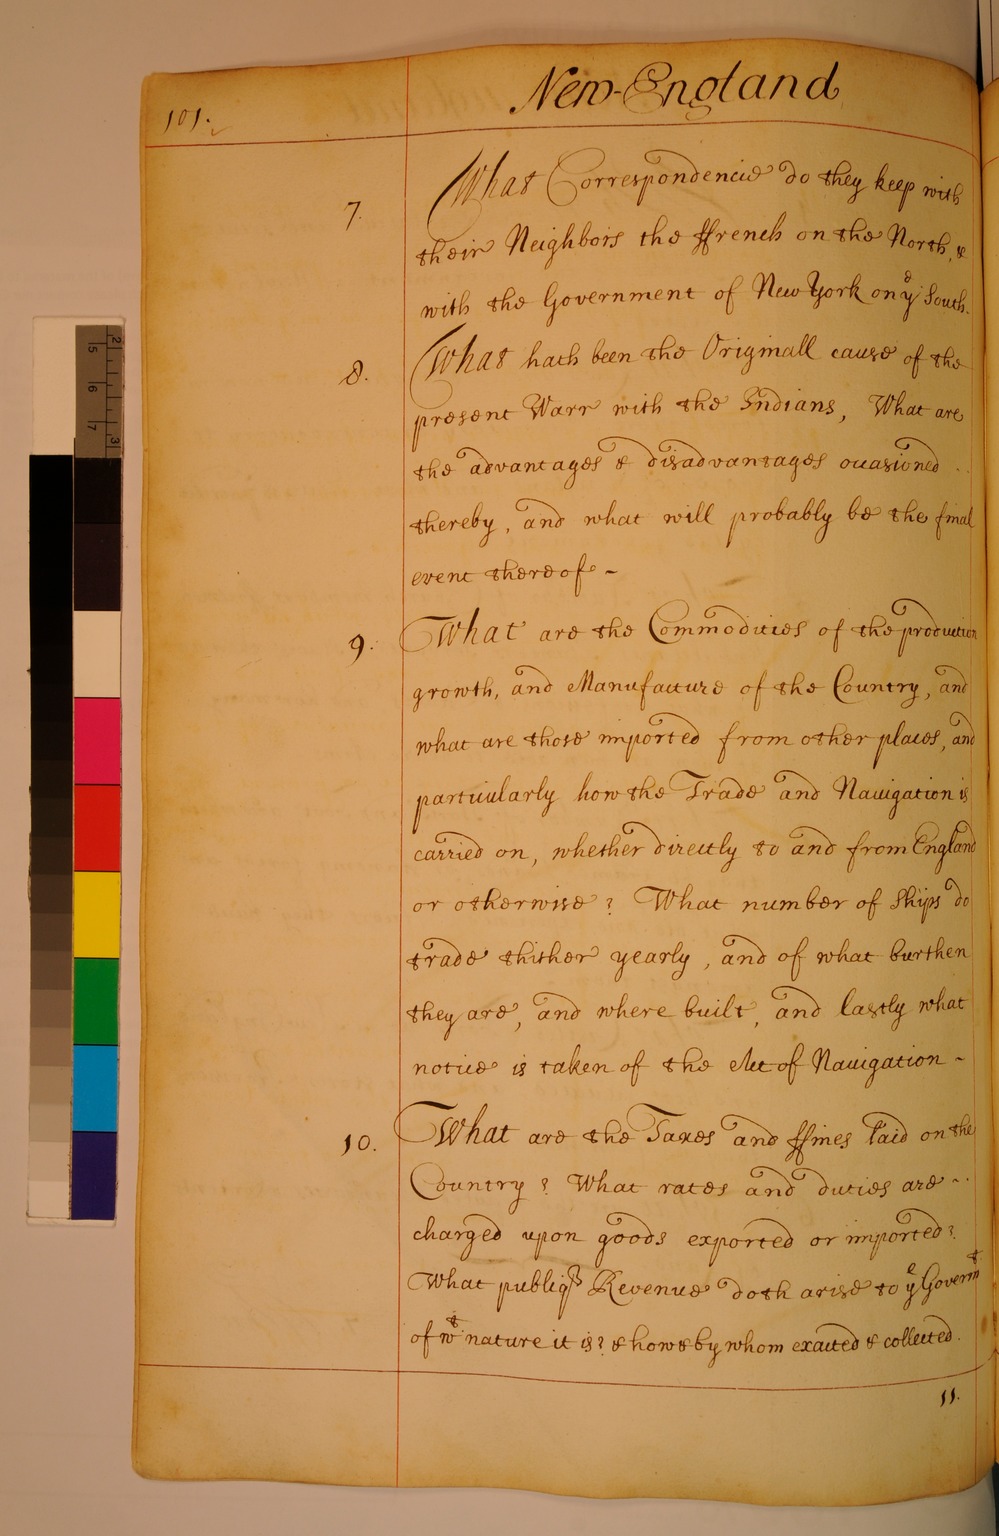 New-England
101.
7. What Correspondencie do they keep with
their Neighbors the ffrench on the North, &
with the Government of New York on yͤ South.
8. What hath been the Originall cause of the
present Warr with the Indians, What are
the advantages & disadvantages occasioned
thereby, and what will probably be the final
event thereof ~
9. What are the Commodities of the production
growth, and Manufacture of the Country, and
what are those imported from other places, and
particularly how the Trade and Nauigation is
carried on, whether directly to and from England
or otherwise? What number of Ships do
trade thither yearly, and of what burthen
they are, and where built, and lastly what
notice is taken of the Act of Nauigation ~
10. What are the Taxes and ffines laid on the
Country? What rates and duties are
charged upon goods exported or imported?
What publiq Revenue doth arise to yͤ Governmͭ
of wͭ nature it is? & how & by whom exacted & collected.
11.
2
5
6
7
3